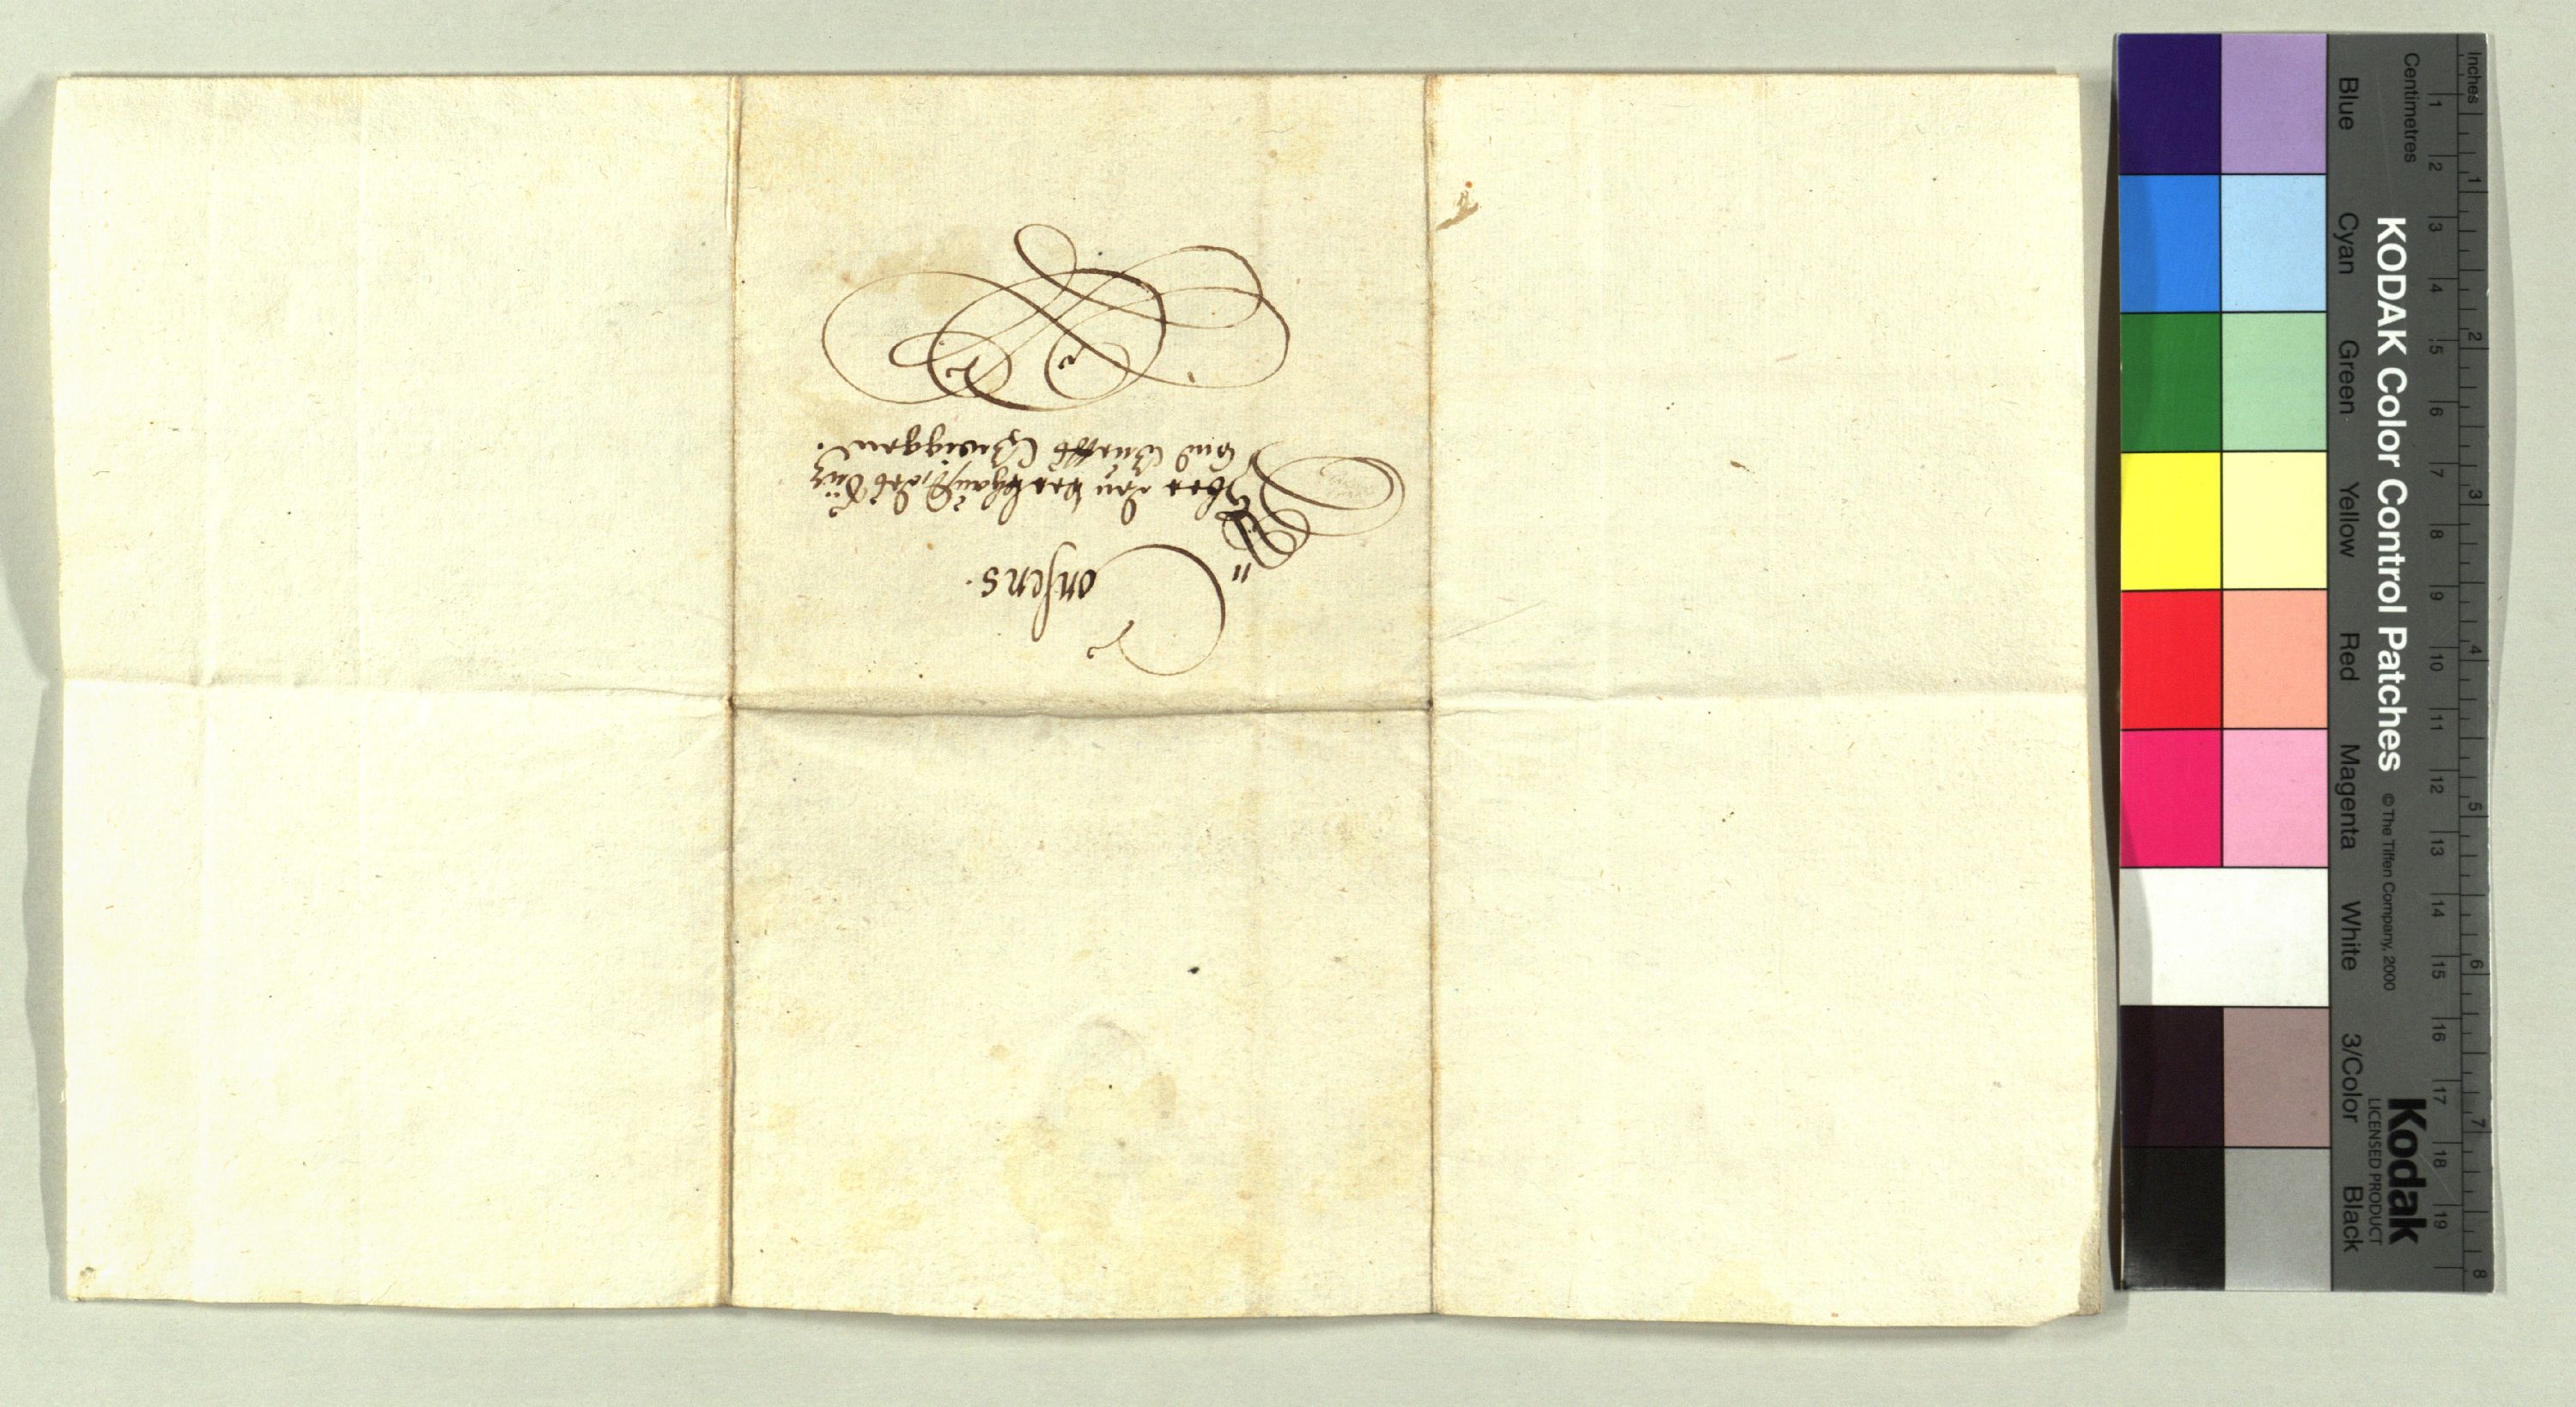 Consens.
Über den verkhauff, des Guts
und Burckh Zwiggen.
Inches
Centimetres
1 2 3 4 5 6 7 8
1 2 3 4 5 6 7 8 9 10 11 12 13 14 15 16 17 18 19
KODAK Color Control Patches © The Tiffen Company, 2000
Kodak
LICENSED PRODUCT
Blue Cyan Green Yellow Red Magenta White 3/Color Black